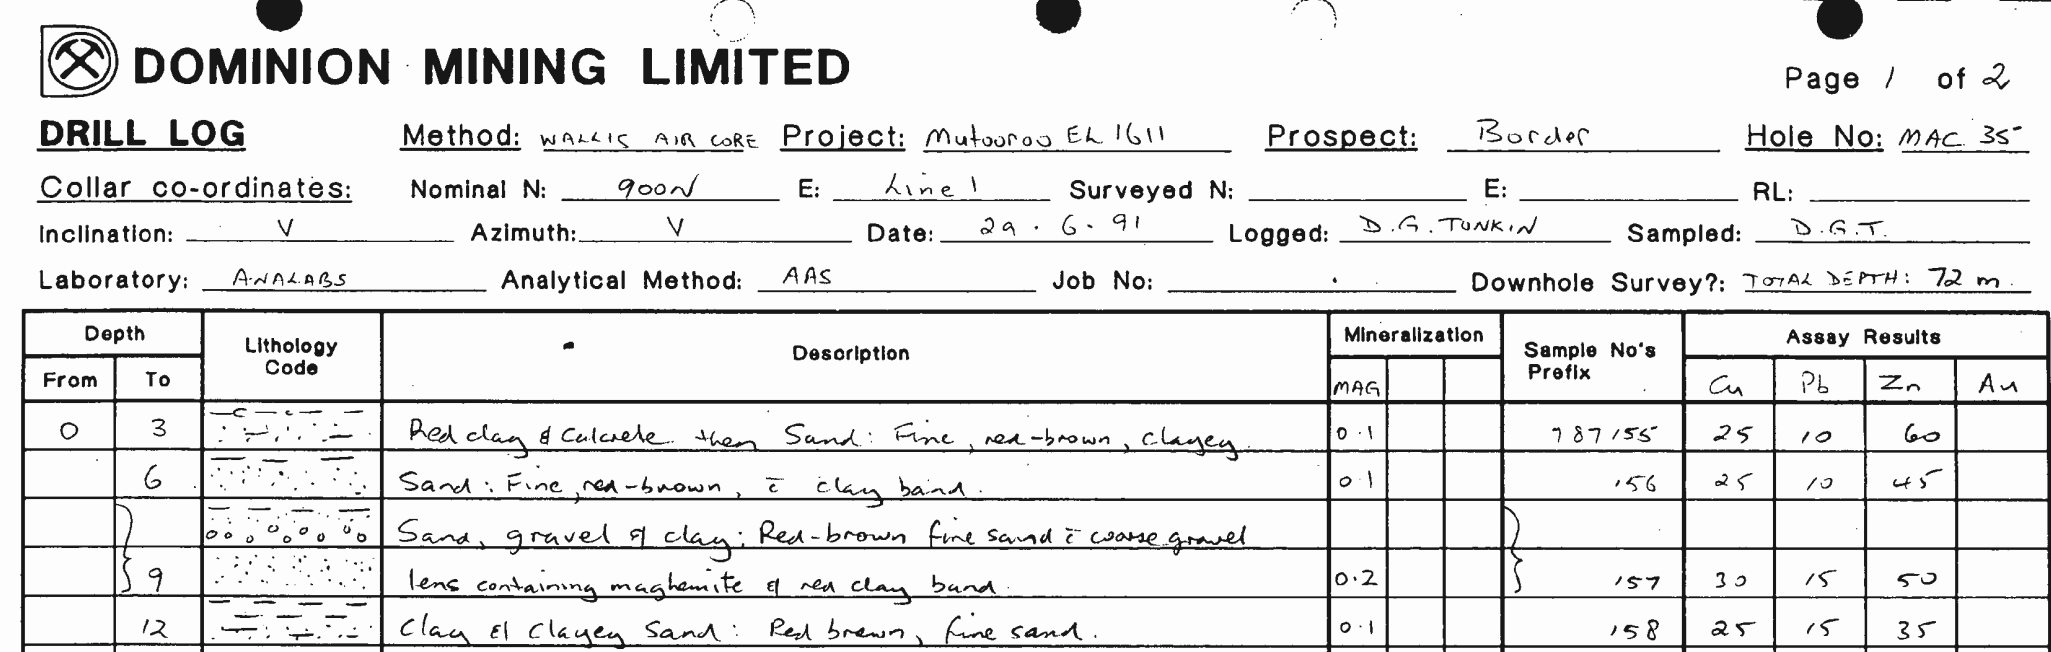 DOMINION MINING LIMITED
Page 1 of 2
DRILL LOG Method: WALLIS AIR CORE Project: Mutooroo EL 1611 Prospect: Border Hole No: MAC 35
Collar co-ordinates: Nominal N: 900N E: Line 1 Surveyed N: E: RL:
Inclination: V Azimuth: V Date: 29.6.91 Logged: D.G. TONKIN Sampled: D.G.T.
Laboratory: ANALABS Analytical Method: AAS Job No: Downhole Survey?: TOTAL DEPTH: 72 m.
Depth Lithology Code Description Mineralization Sample No's Prefix Assay Results
From To MAG Cu Pb Zn Au
0 3 Red clay & Calcrete then Sand: Fine, red-brown, clayey. 0.1 787155 25 10 60
6 Sand: Fine, red-brown, c̄ clay band. 0.1 156 25 10 45
Sand, gravel & clay: Red-brown fine sand c̄ coarse gravel
9 lens containing maghemite & red clay band. 0.2 157 30 15 50
12 Clay & Clayey Sand: Red brown, fine sand. 0.1 158 25 15 35